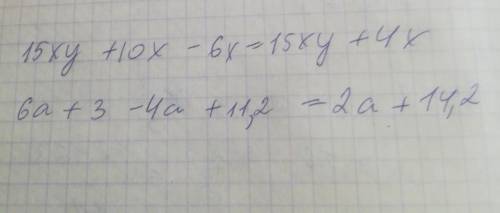 15xy + 10x - 6x = 15xy + 4x
6a + 3 - 4a + 11,2 = 2a + 14,2